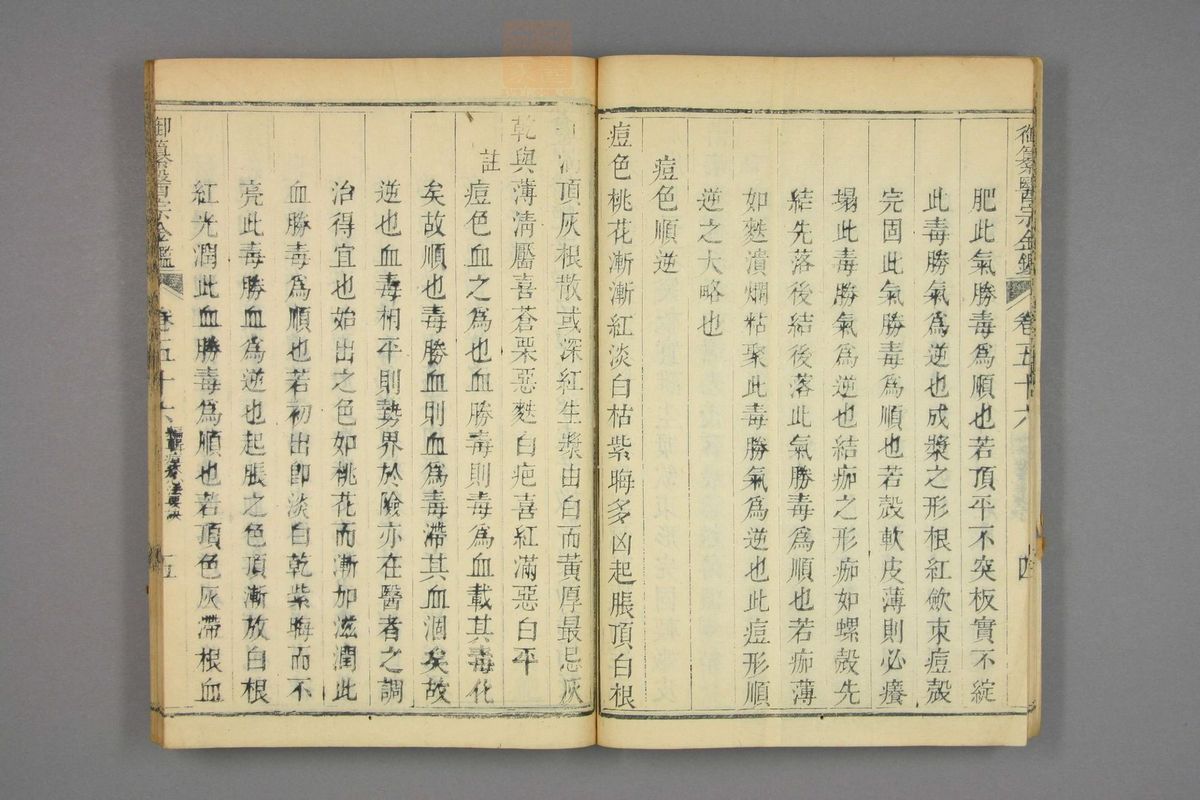 御纂醫宗金鑑 卷五十六 四
肥此氣勝毒爲順也若頂平不突板實不綻
此毒勝氣爲逆也成漿之形根紅斂束痘殼
完固此氣勝毒爲順也若殼軟皮薄則必癢
塌此毒勝氣爲逆也結痂之形痂如螺殼先
結先落後結後落此氣勝毒爲順也若痂薄
如麩潰爛粘聚此毒勝氣爲逆也此痘形順
逆之大略也
痘色順逆
痘色桃花漸漸紅淡白枯紫晦多凶起脹頂白根
頂灰根散或深紅生漿由白而黃厚最忌灰
乾與薄淸靨喜蒼栗惡麩白疤喜紅滿惡白平
註
痘色血之爲也血勝毒則毒爲血載其毒化
矣故順也毒勝血則血爲毒滯其血涸矣故
逆也血毒相平則勢界於險亦在醫者之調
治得宜也始出之色如桃花而漸加滋潤此
血勝毒爲順也若初出卽淡白乾紫晦而不
亮此毒勝血爲逆也起脹之色頂漸放白根
紅光潤此血勝毒爲順也若頂色灰滯根血
御纂醫宗金鑑 卷五十六 十五